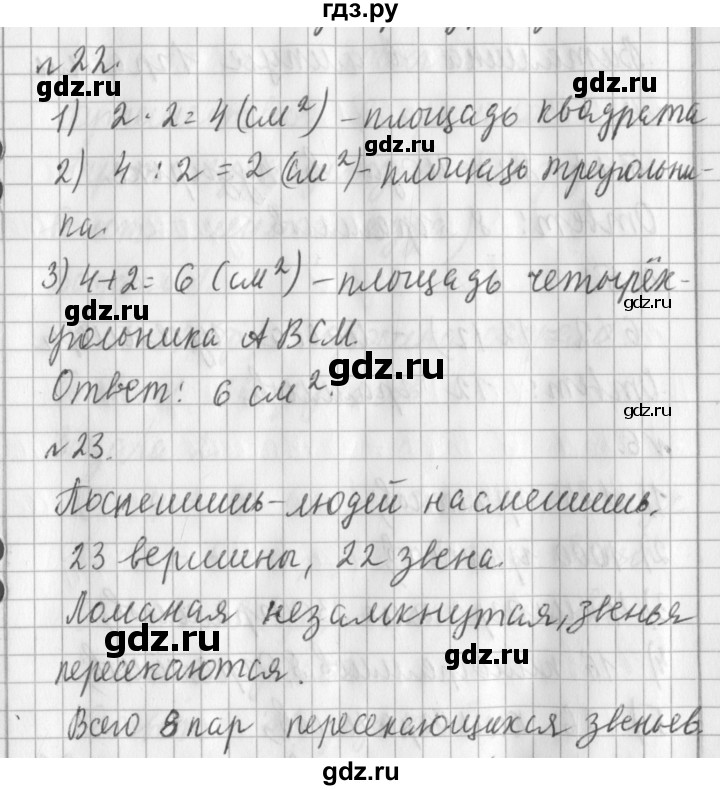 гдз.ру
n 22.
1) 2 · 2 = 4 (см²) – площадь квадрата
gdz.ru
2) 4 : 2 = 2 (см²) – площадь треугольни-
ка.
3) 4+2 = 6 (см²) – площадь четырёх-
gdz.ru gdz.ru
угольника АВСМ.
gdz.ru
Ответ: 6 см².
gdz.ru
n 23.
Поспешишь – людей насмешишь.
gdz.ru
23 вершины, 22 звена.
Ломаная незамкнутая, звенья
gdz.ru
пересекаются.
gdz.ru
Всего 8 пар пересекающихся звеньев.
gdz.ru
gdz.ru